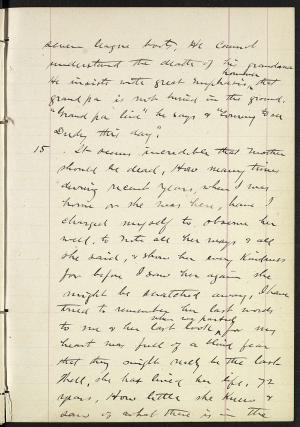 seven league boots. He cannot
understand the death of his grandma
He insists with great emphasis, however, that
grandpa is not buried in the ground.
"Grandpa live" he says & "coming to see
this day".
15 It seems incredible that mother
should be dead. How many times
during recent years, when I was
home or she was here, have I
charged myself to observe her
well, to note all her ways & all
she said, & show her every kindness
for before I saw her again she
might be snatched away, I have
tried to remember her last words
to me & her last look, when we parted, for my
heart was full of a blind fear
that they might really be the last
Well, she has lived her life, 72
years. How little she knew &
saw of what there is in the